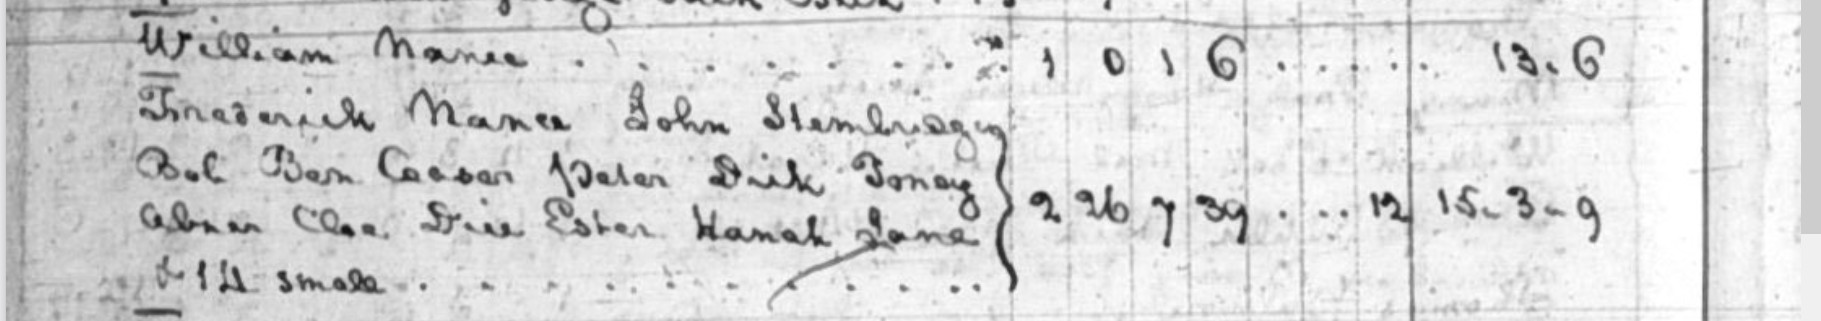 William Nance . . . . . . . . 1 0 1 6 . . . . . 13. 6
Frederick Nance John Stembridge
Bob Ben Ceaser Peter Dick Toney
Abner Cloe Dice Ester Hanah Jane 2 26 7 39 . . . 12 15. 3. 9
& 14 small . . . . . . . . . .